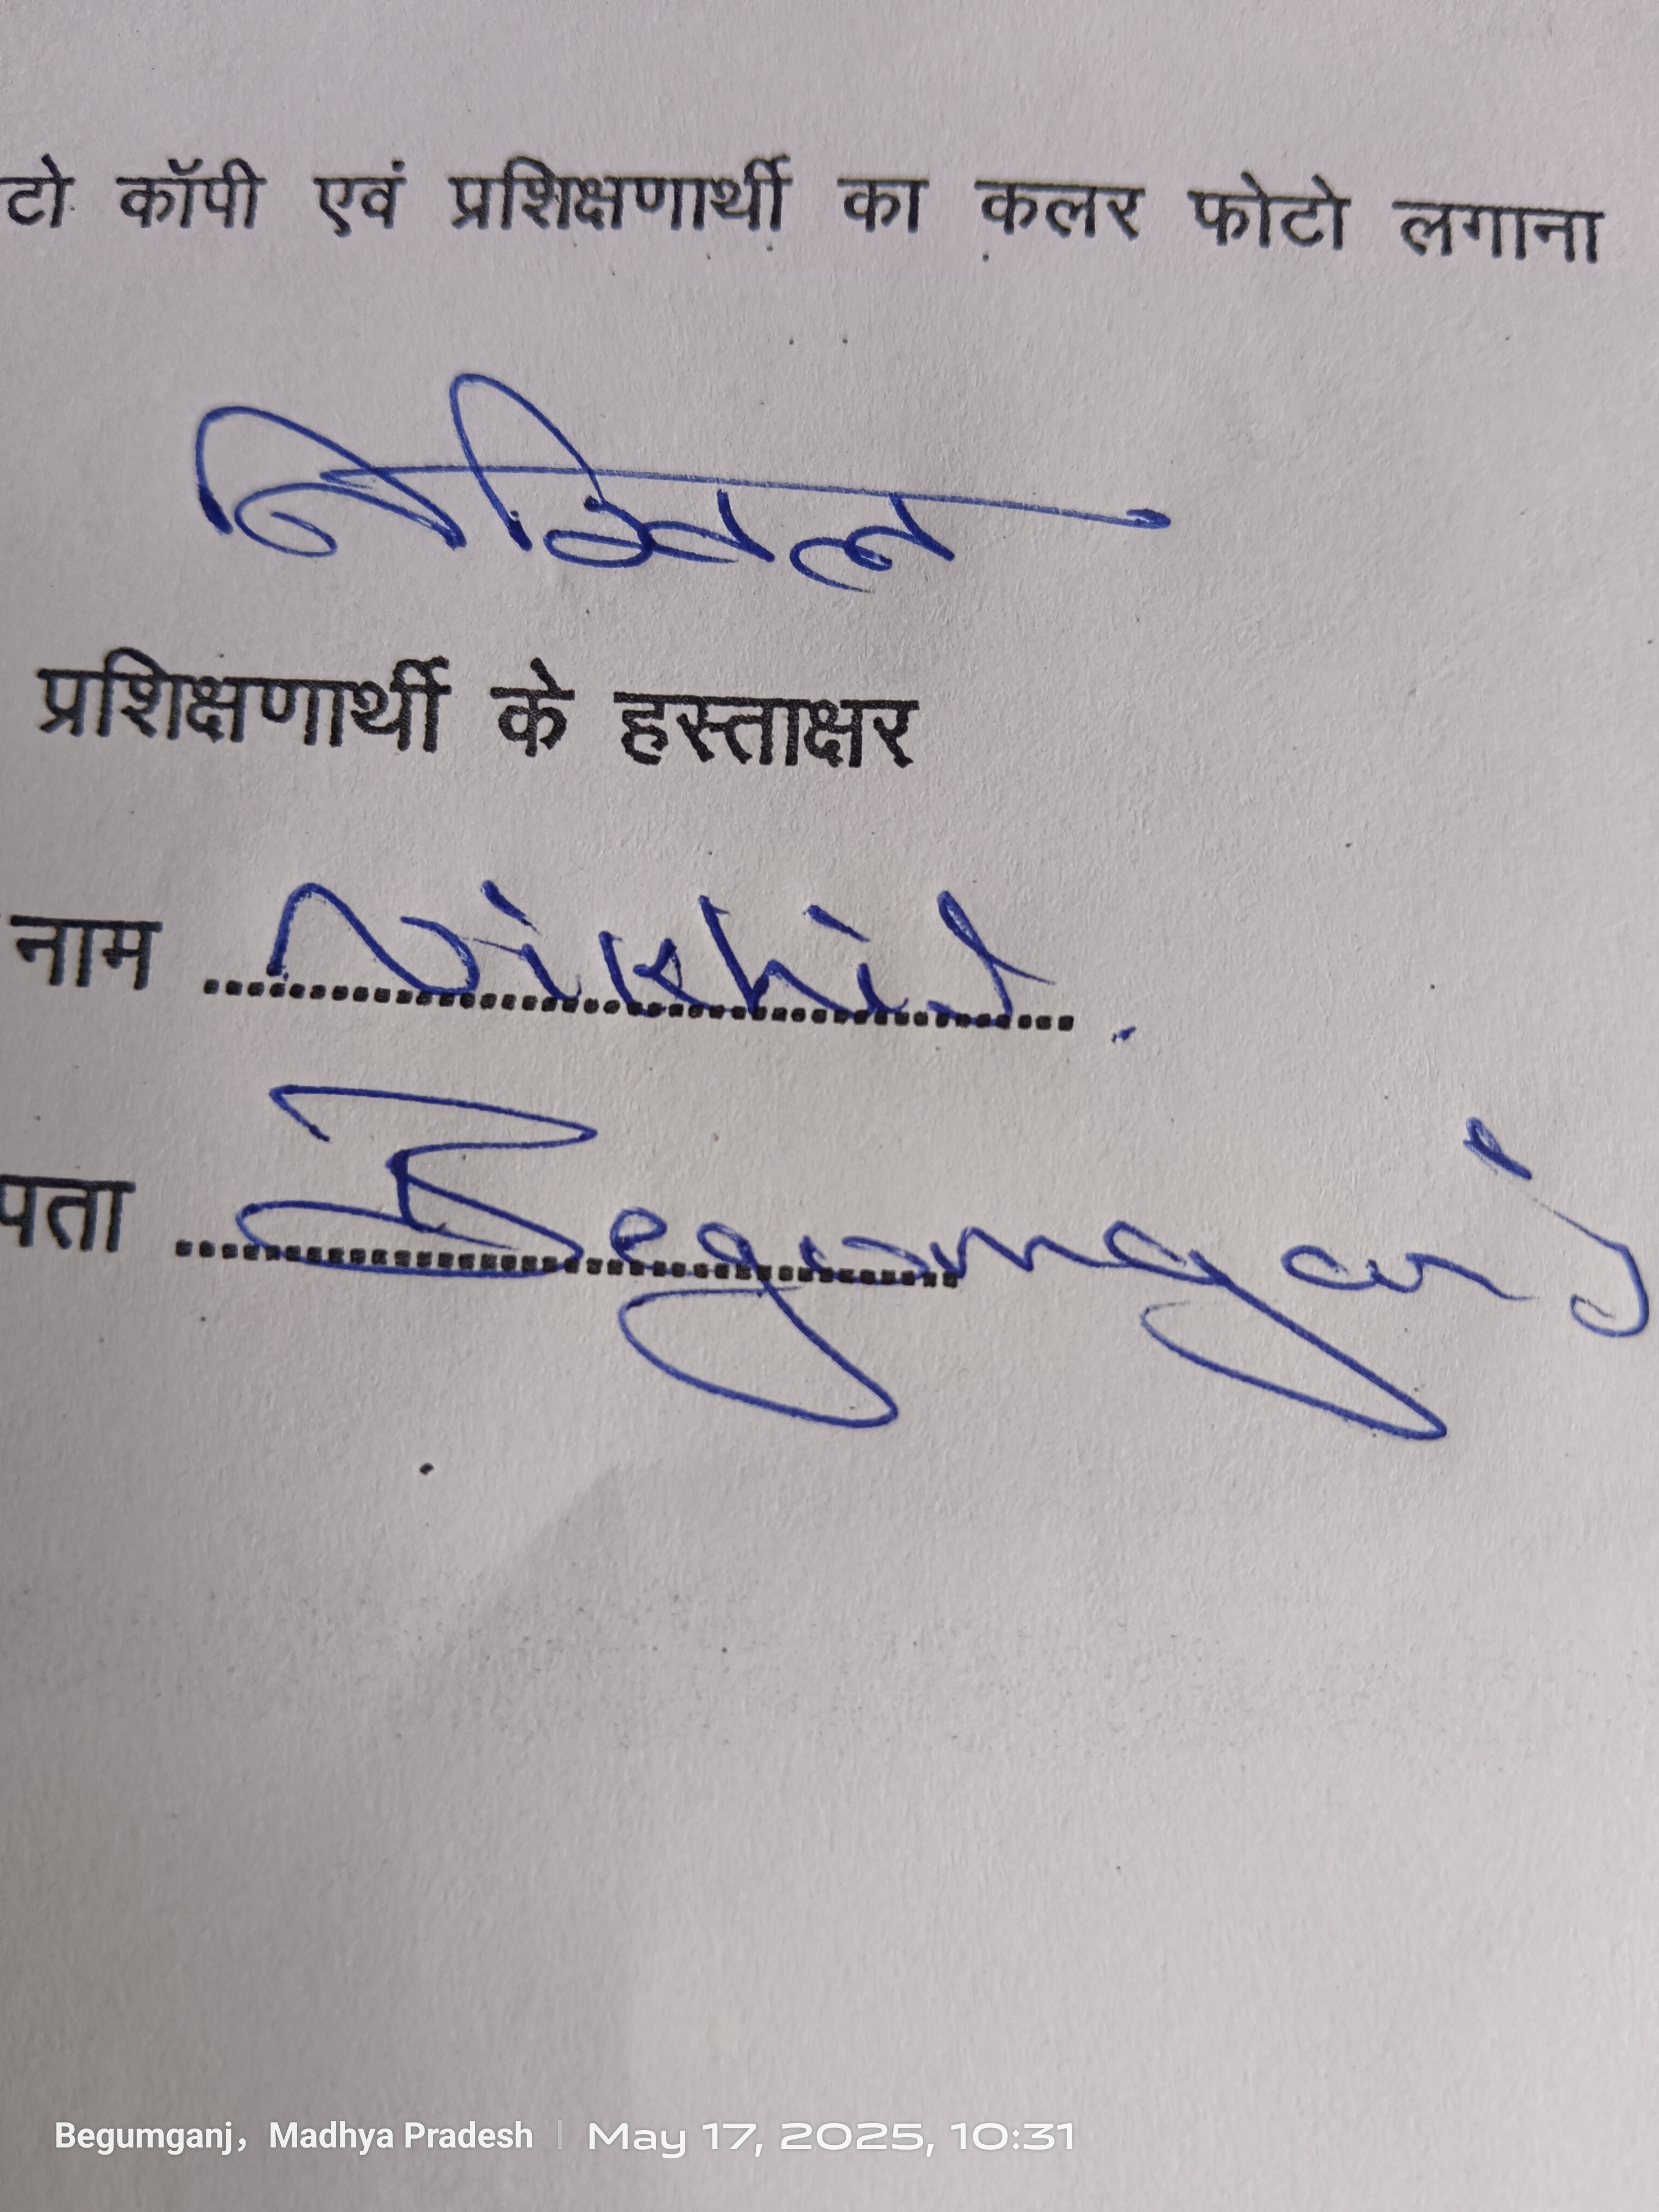 टो कॉपी एवं प्रशिक्षणार्थी का कलर फोटो लगाना
निखिल
प्रशिक्षणार्थी के हस्ताक्षर
नाम Nikhil.
पता Begumganj
Begumganj, Madhya Pradesh | May 17, 2025, 10:31